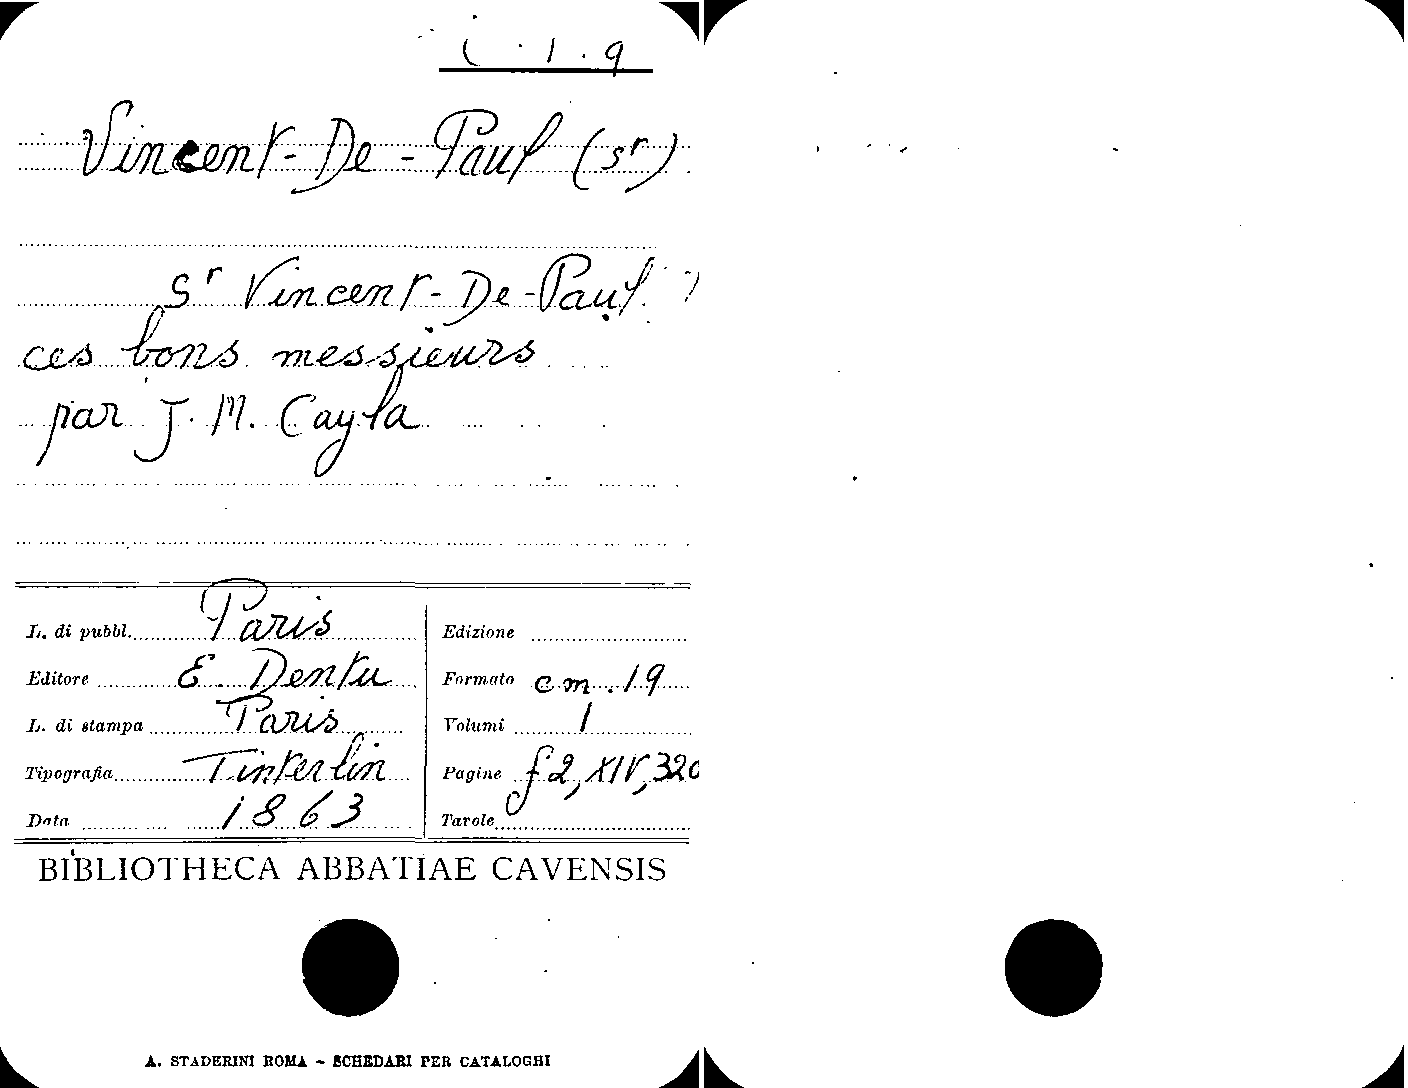 i . 1 . 9
Vincent-De-Paul (st)
St Vincent-De-Paul
ces bons messieurs
par J. M. Cayla
L. di pubbl. Paris
Editore E. Dentu
L. di stampa Paris
Tipografia Tinterlin
Data 1863
Edizione
Formato cm. 19
Volumi 1
Pagine f 2, XIV, 320
Tavole
BIBLIOTHECA ABBATIAE CAVENSIS
A. STADERINI ROMA - SCHEDARI PER CATALOGHI